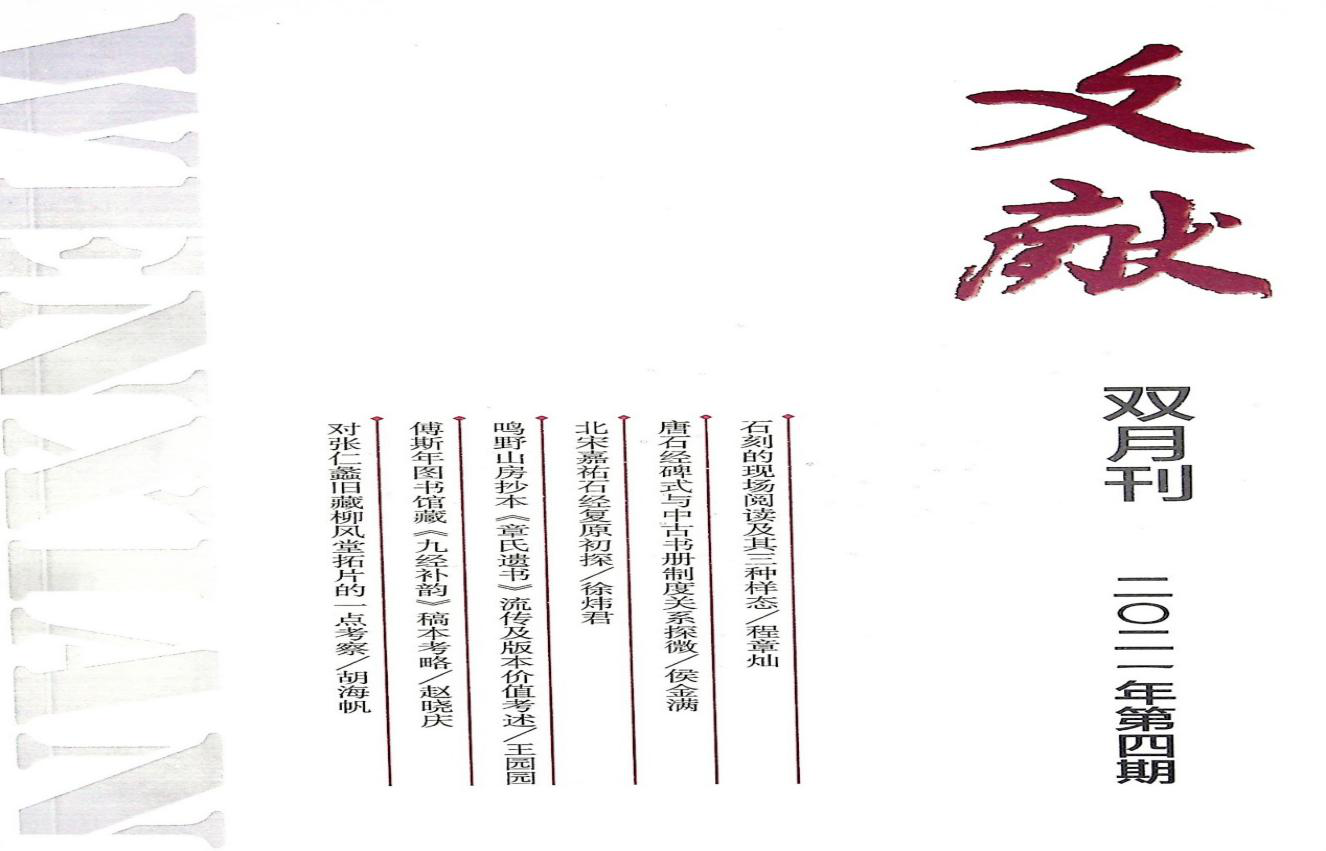 文献
双月刊
二〇二一年第四期
石刻的现场阅读及其三种样态/程章灿
唐石经碑式与中古书册制度关系探微/侯金满
北宋嘉祐石经复原初探/徐炜君
鸣野山房抄本《章氏遗书》流传及版本价值考述/王园园
傅斯年图书馆藏《九经补韵》稿本考略/赵晓庆
对张仁蠡旧藏柳风堂拓片的一点考察/胡海帆
WENXIAN